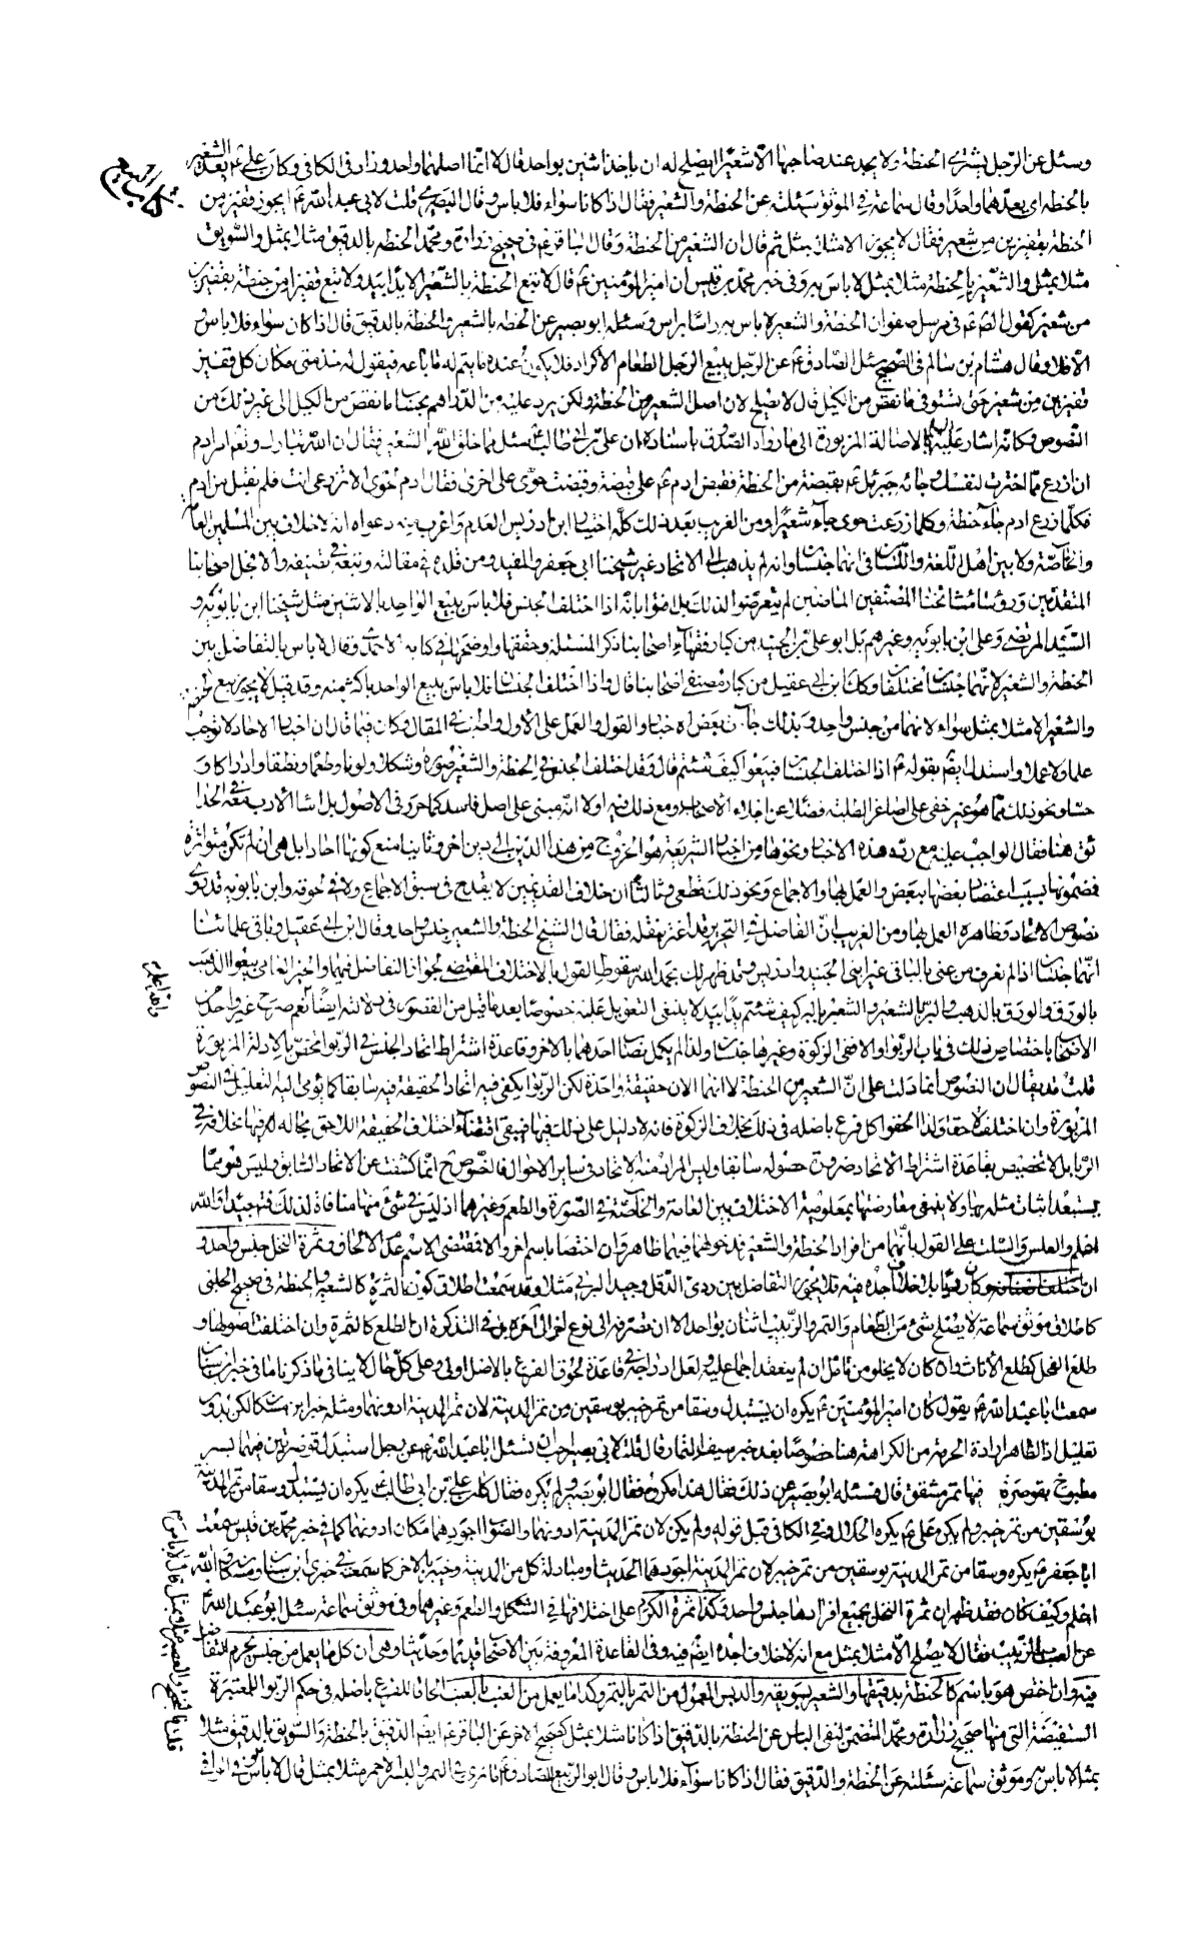 كتاب البيع
وسئل عن الرجل يشترى الحنطة ولا يجد عند صاحبها الا شعيرا ايصلح له ان ياخذ اثنين بواحد قال لا انما اصلهما واحد وزاد فى الكافى وكان على ع يعد الشعير
بالحنطة اى يعدهما واحدا وقال سماعة فى الموثق سئلته عن الحنطة والشعير فقال اذا كانا سواء فلا باس وقال البصرى قلت لابى عبد الله ع ايجوز قفيز من
الحنطة بقفيزين من شعير فقال لا يجوز الا مثلا بمثل ثم قال ان الشعير من الحنطة وقال الباقر ع فى صحيح زرارة ومحمد الحنطة بالدقيق مثلا بمثل والسويق
مثلا بمثل والشعير بالحنطة مثلا بمثل لا باس به وفى خبر محمد بن قيس ان امير المؤمنين ع قال لا تبع الحنطة بالشعير الا يدا بيد ولا تبع قفيزا من حنطة بقفيزين
من شعير كقول الصم ع فى مرسل صفوان الحنطة والشعير لا باس به راسا براس وسئله ابو بصير عن الحنطة بالشعير والحنطة بالدقيق قال اذا كان سواء فلا باس و
الا فلا وقال هشام بن سالم فى الصحيح سئل الصادق ع عن الرجل يبيع الرجل الطعام الاكرار فلا يكون عنده ما يتم له ما باعه فيقول له خذ منى مكان كل قفيز
قفيزين من شعير حتى تستوفى ما نقص من الكيل قال لا يصلح لان اصل الشعير من الحنطة ولكن يرد عليه من الدراهم بحساب ما نقص من الكيل الى غير ذلك من
النصوص وكانه اشار عليه السلام بالاصالة المزبورة الى ما رواه الصدوق باسناده ان على بن ابى طالب ع سئل مما خلق الله الشعير فقال ان الله تبارك وتعم امر ادم
ان ازرع مما اخترت لنفسك وجائه جبرئيل ع بقبضة من الحنطة فقبض ادم ع على قبضة وقبضت حوى على اخرى فقال ادم لحوى لا تزرعى انت فلم تقبل من ادم
فكلما زرع ادم جاء حنطة وكلما زرعت حوى جاء شعيرا ومن الغريب بعد ذلك كله اختيار ابن ادريس العدم واغرب منه دعواه انه لا خلاف بين المسلمين العامة
والخاصة ولا بين اهل اللغة واللسان فى انهما جنسان وانه لم يذهب الى الاتحاد غير شيخنا ابى جعفر والمفيد ومن قلده فى مقالته وتبعه فى تصنيفه والا فجل اصحابنا
المتقدمين ورؤساء مشائخنا المصنفين الماضين لم يتعرضوا لذلك بل افتوا بانه اذا اختلف الجنس فلا باس ببيع الواحد بالاثنين مثل شيخنا ابن بابويه و
السيد المرتضى وعلى ابن بابويه وغيرهم بل ابو على بن الجنيد من كبار فقهاء اصحابنا ذكر المسئلة وحققها واوضحها فى كتابه الاحمدى وقال لا باس بالتفاضل بين
الحنطة والشعير لانهما جنسان مختلفان وكان ابن ابى عقيل من كبار مصنفى اصحابنا قال واذا اختلف الجنسان فلا باس ببيع الواحد باكثر منه وقد قيل لا يجوز بيع الحنطة
والشعير الا مثلا بمثل سواء لانهما من جنس واحد وبذلك جاءت بعض الاخبار والقول والعمل على الاول واطنب فى المقال وكان فيما قال ان اخبار الاحاد لا توجب
علما ولا عملا واستدل ايضم بقوله ع اذا اختلف الجنسان فبيعوا كيف شئتم قال وقد اختلف الجنس فى الحنطة والشعير صورة وشكلا ولونا وطعما ونطقا وادراكا و
حسا ونحو ذلك مما هو غير خفى على اصاغر الطلبة فضلا عن اجلاء الاصحاب ومع ذلك فيه اولا انه مبنى على اصل فاسد كما حرر فى الاصول بل اشاء الادب معه فى
هنا فقال الواجب عليه مع رده هذه الاخبار ونحوها من اخبار الشريعة هو الخروج من هذا الدين الى دين اخر وثانيا منع كونها احادا بل هى ان لم تكن متواترة
فمضمونها بسبب اعتضاد بعضها ببعض والعمل بها والاجماع ونحو ذلك قطعى وثالثا ان خلاف القديمين لا يقدح فى سبق الاجماع ولا فى لحوقه وابن بابويه قد روى
نصوص الاتحاد وظاهره العمل بها ومن الغريب ان الفاضل فى التحرير قد اغتر بنقله فقال قال الشيخ الحنطة والشعير جنس واحد وقال ابن ابى عقيل وباقى علمائنا
انهما جنسان اذ لم نعرف من عنى بالباقى غير ابنى الجنيد وادريس وقد ظهر لك بحمد الله سقوط القول بالاختلاف المقتضى لجواز التفاضل فيهما والخبر العامى بيعوا الذهب
بالورق والورق بالذهب والبر بالشعير والشعير بالبر كيف شئتم يدا بيد لا ينبغى التعويل عليه خصوصا بعد ما قيل من القصور فى دلالته ايضا نعم صرح غير واحد من
الاصحاب باختصاص ذلك فى باب الربوا والا فهى الزكوة وغيرها جنسان ولذا لم يكمل نصاب احدهما بالاخر وقاعدة اشتراط اتحاد الجنس فى الربوا تخص بالادلة المزبورة
قلت قد يقال ان النصوص انما دلت على ان الشعير من الحنطة لا انهما الان حقيقة واحدة لكن الربوا يكفى فيه اتحاد الحقيقة فيه سابقا كما يومى اليه التعليل فى النصوص
المزبورة وان اختلف لاحقا ولذا الحقوا كل فرع باصله فى ذلك بخلاف الزكوة فانه لا دليل على ذلك فيها فيبقى اقتضاء اختلاف الحقيقة اللاحق بحاله فيها بخلافه فى
الربا بل لا تخصيص بقاعدة اشتراط الاتحاد ضرورة حصوله سابقا وليس المراد منه الاتحاد فى ساير الاحوال فالنصوص ح انما كشفت عن الاتحاد السابق وليس هو مما
يستبعد اثبات مثله بها ولا ينبغى معارضتها بمعلومية الاختلاف بين العامة والخاصة فى الصورة والطعم وغيرهما اذ ليس فى شئ منها منافاة لذلك فتدبر جيدا والله
اعلم والعلس والسلت على القول بانهما من افراد الحنطة والشعير فدخولهما فيهما ظاهر وان اختصا باسم اخر والا فمقتضى الاسم عدم الالحاق وثمرة النخل جنس واحد و
ان اختلفت اصنافه وكان رديا بلا خلاف اجده فيه فلا يجوز التفاضل بين ردى الدقل وجيد البرنى مثلا وقد سمعت اطلاق كون التمرة كالشعير بالحنطة فى صحيح الحلبى
كاطلاق موثق سماعة لا يصلح شئ من الطعام والتمر والزبيب اثنان بواحد الا ان تصرفه الى نوع اخر الى اخره بل فى التذكرة ان الطلع كالتمرة وان اختلفت اصولها و
طلع الفحل كطلع الاناث وان كان لا يخلو من تامل ان لم ينعقد اجماع عليه ولعل ادراجه فى قاعدة لحوق الفرع بالاصل اولى وعلى كل حال لا ينافى ما ذكرنا ما فى خبر ابن سنان
سمعت ابا عبد الله ع يقول كان امير المؤمنين ع يكره ان يستبدل وسقا من تمر خيبر بوسقين من تمر المدينة لان تمر المدينة ادونهما ومثله خبر ابن مسكان لكن بدون
تعليل اذ الظاهر ارادة الحرمة من الكراهة هنا خصوصا بعد خبر سيف التمار قال قلت لابى بصير احب ان تسئل ابا عبد الله ع عن رجل استبدل قوصرتين فيهما بسر
مطبوخ بقوصرة فيها تمر مشقق قال فسئله ابو بصير عن ذلك فقال هذا مكروه فقال ابو بصير ولم يكره فقال كان على بن ابى طالب ع يكره ان يستبدل وسقا من تمر المدينة
بوسقين من تمر خيبر ولم يكن على ع يكره الحلال وفى الكافى قبل قوله ولم يكن لان تمر المدينة ادونهما والصواب اجودهما مكان ادونهما كما فى خبر محمد بن قيس سمعت
ابا جعفر ع يكره وسقا من تمر المدينة بوسقين من تمر خيبر لان تمر المدينة اجودهما الحديث او مبادلة كل من المدينة وخيبر بالاخر كما سمعته فى خبرى ابن سنان ومسكان والله
اعلم وكيف كان فقد ظهر ان ثمرة النخل بجميع افرادها جنس واحد وكذا ثمرة الكرم على اختلافها فى الشكل والطعم وغيرهما وفى موثق سماعة سئل ابو عبد الله ع
عن العنب بالزبيب فقال لا يصلح الا مثلا بمثل مع انه لا خلاف اجده ايضم فيه وفى القاعدة المعروفة بين الاصحاب قديما وحديثا وهى ان كل ما يعمل من جنس يحرم التفاضل
فيه وان اختص هو باسم كالحنطة بدقيقها والشعير بسويقه والدبس المعمول من التمر بالتمر وكذا ما يعمل من العنب بالعنب الحاقا للفرع باصله فى حكم الربوا للمعتبرة
المستفيضة التى منها صحيح زرارة ومحمد المتضمن لنفى الباس عن الحنطة بالدقيق اذا كانا مثلا بمثل كصحيح الاخر عن الباقر ع ايضم الدقيق بالحنطة والسويق بالدقيق مثلا
بمثل لا باس به وموثق سماعة سئلته عن الحنطة والدقيق فقال اذا كانا سواء فلا باس وقال ابو الربيع للصادق ع ما ترى فى التمر والبسر الاحمر مثلا بمثل قال لا باس